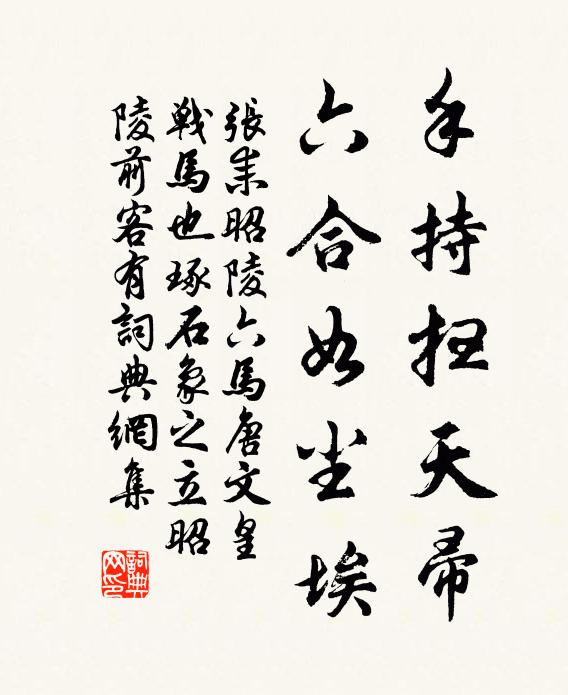 手持扫天帚
六合如尘埃
張耒昭陵六馬唐文皇
戦馬也琢石象之立昭
陵前客有詞典網集
詞典网印